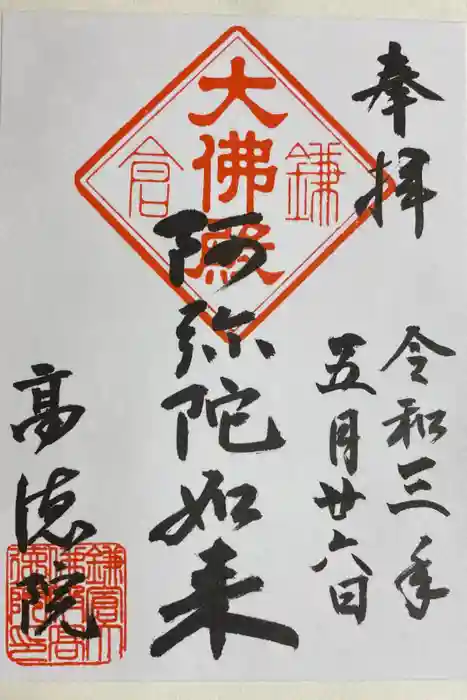 奉拝
令和三年
五月廿六日
鎌倉
大佛殿
阿弥陀如来
高徳院